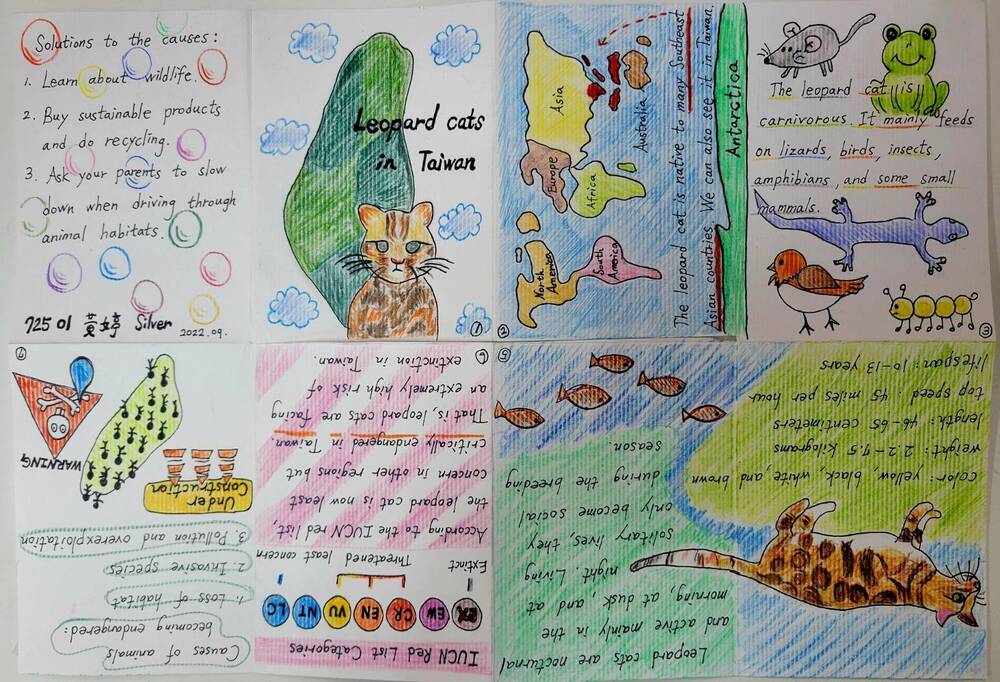 Solutions to the causes:
1. Learn about wildlife.
2. Buy sustainable products
and do recycling.
3. Ask your parents to slow
down when driving through
animal habitats.
72501 黃婷 Silver 2022.09.
Leopard cats
in Taiwan
1
Asia
Europe
Africa
Australia
North
America
South
America
Antarctica
The leopard cat is native to many Southeast
Asian countries. We can also see it in Taiwan.
2
The leopard cat is
carnivorous. It mainly feeds
on lizards, birds, insects,
amphibians, and some small
mammals.
3
color: yellow, black, white, and brown
weight: 2.2-7.5 kilograms
length: 46-65 centimeters
top speed: 45 miles per hour
lifespan: 10-13 years
Leopard cats are nocturnal
and active mainly in the
morning, at dusk, and at
night. Living
solitary lives, they
only become social
during the breeding
season.
5
IUCN Red List Categories
EX EW CR EN VU NT LC
Extinct Threatened least concern
According to the IUCN red list,
the leopard cat is now least
concern in other regions but
critically endangered in Taiwan.
That is, leopard cats are facing
an extremely high risk of
extinction in Taiwan.
6
Causes of animals
becoming endangered:
1. Loss of habitat
2. Invasive species
3. Pollution and overexploitation
Under
Construction
WARNING
7